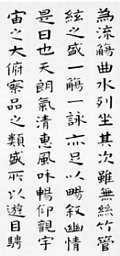 為流觴曲水列坐其次雖無絲竹管
絃之盛一觴一詠亦足以暢叙幽情
是日也天朗氣清惠風和暢仰觀宇
宙之大俯察品之類盛所以遊目騁